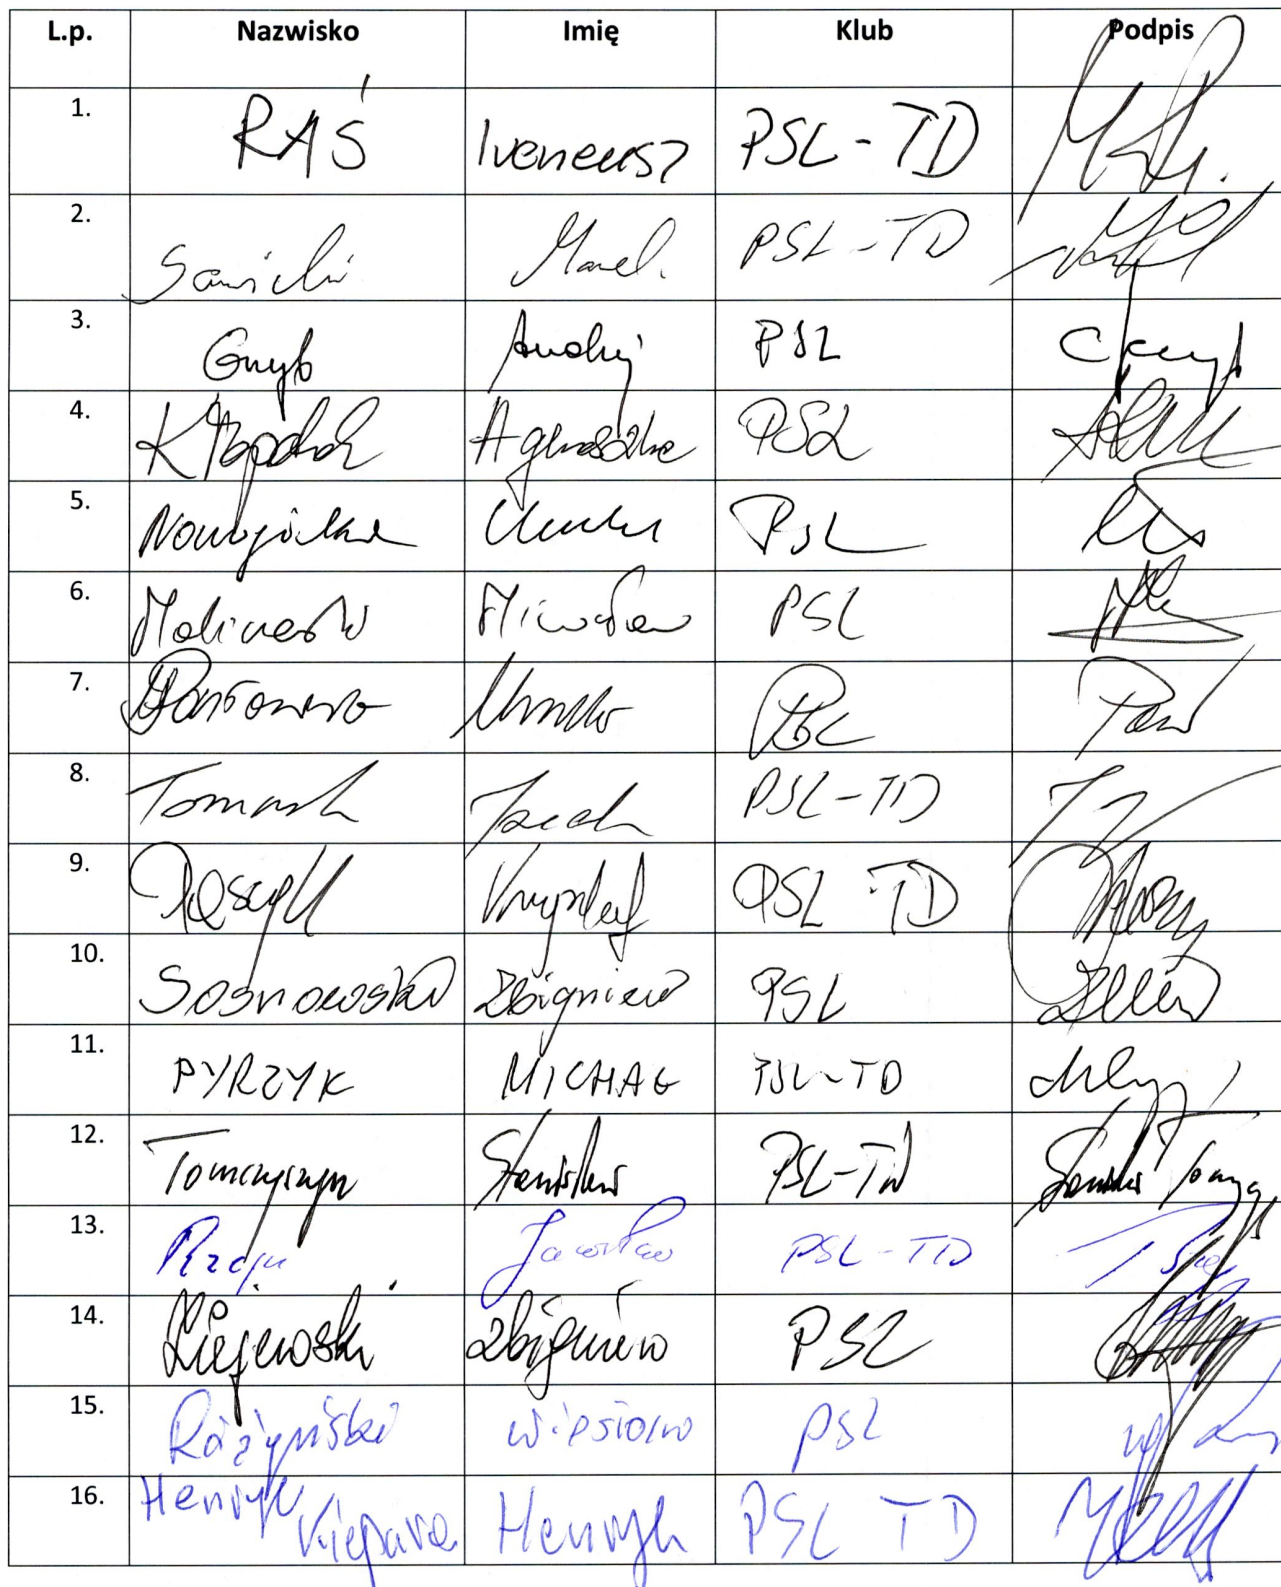 L.p. Nazwisko Imię Klub Podpis
1. RAŚ Ireneusz PSL-TD
2. Sawicki Marek PSL-TD
3. Grzyb Andrzej PSL
4. Kłopotek Agnieszka PSL
5. Nowogórska Urszula PSL
6. Maliszewski Mirosław PSL
7. Pasławska Urszula PSL
8. Tomczak Jacek PSL-TD
9. Paszyk Krzysztof PSL TD
10. Sosnowski Zbigniew PSL
11. PYRZYK MICHAŁ PSL-TD
12. Tomczyszyn Stanisław PSL-TD
13. Rzepa Jarosław PSL-TD
14. Ziejewski Zbigniew PSL
15. Różyński Wiesław PSL
16. Henryk Kiepura Henryk PSL TD